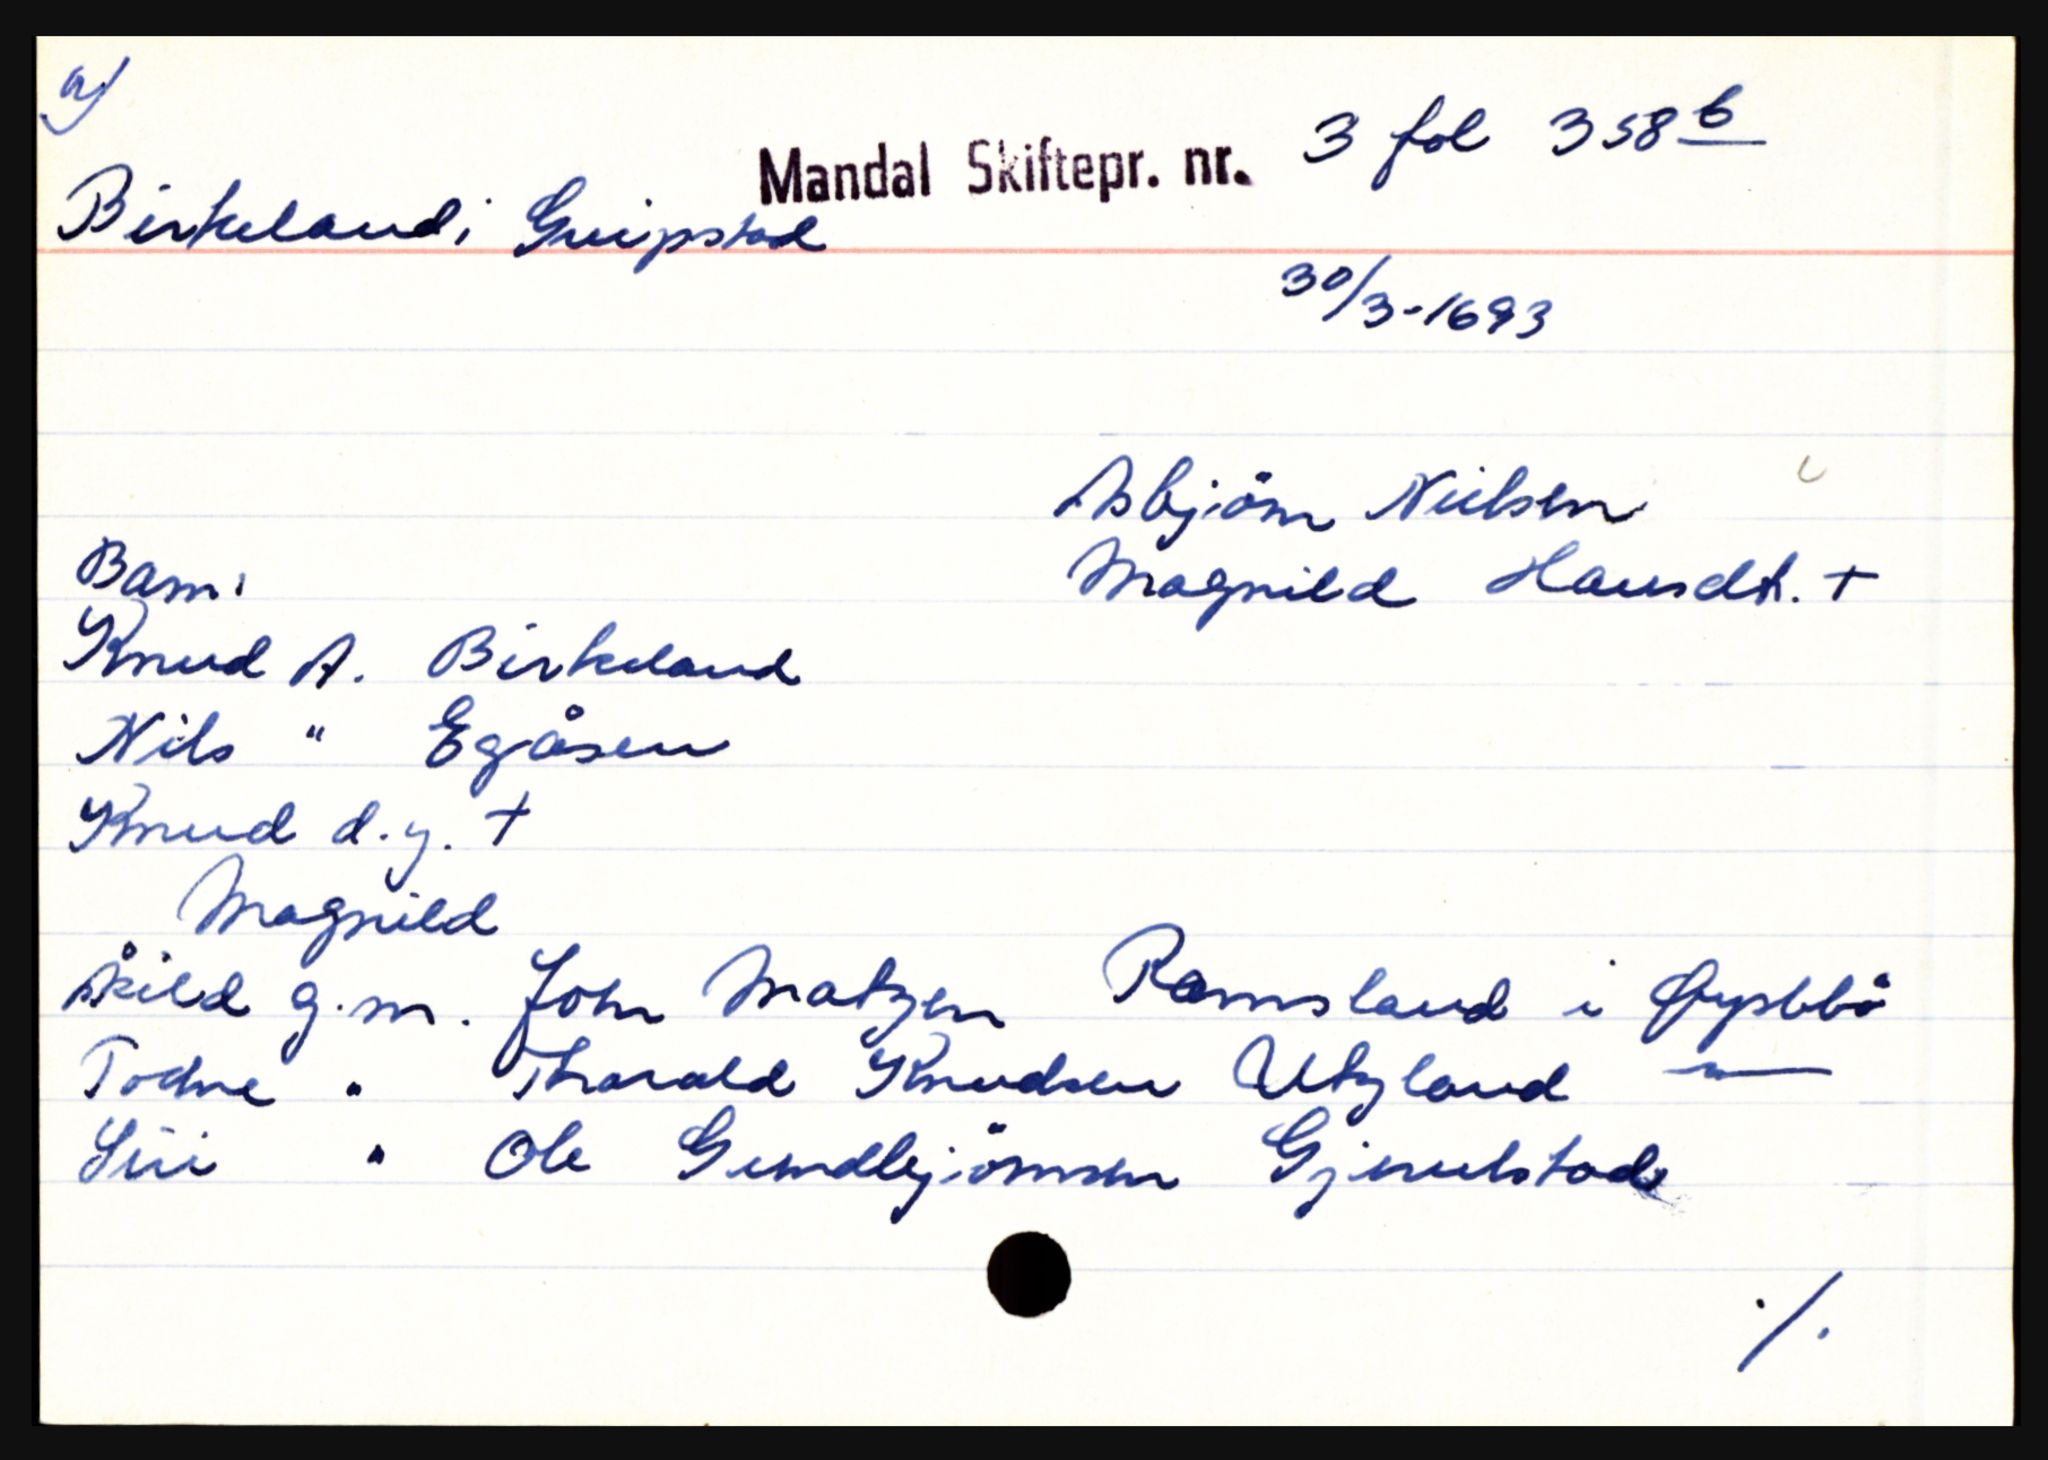 a)
Mandal Skiftepr. nr. 3 fol 358 b
Birkeland, Greipstad
30/3-1693
Asbjörn Nielsen
Magnild Hansdt. +
Barn:
Knud A. Birkeland
Nils " Egåsen
Knud d.y. +
Magnild
Åkild g.m. John Matzen Ramsland i Øyslebö
Todne " Tharald Knudsen Utzland — " —
Siri " Ole Gundbjörnsen Gjerulstad
./.